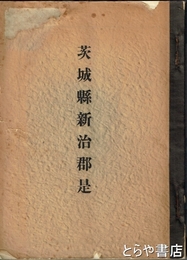 茨城縣新治郡是
とらや書店